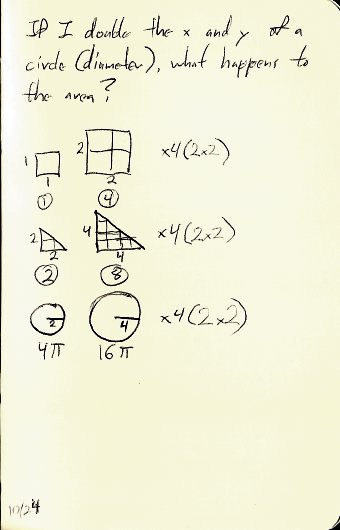 If I double the x and y of a
circle (diameter), what happens to
the area?
1 1 2 2 x4(2x2)
1 4
2 2 4 4 x4(2x2)
2 8
2 4 x4(2x2)
4π 16π
10/24